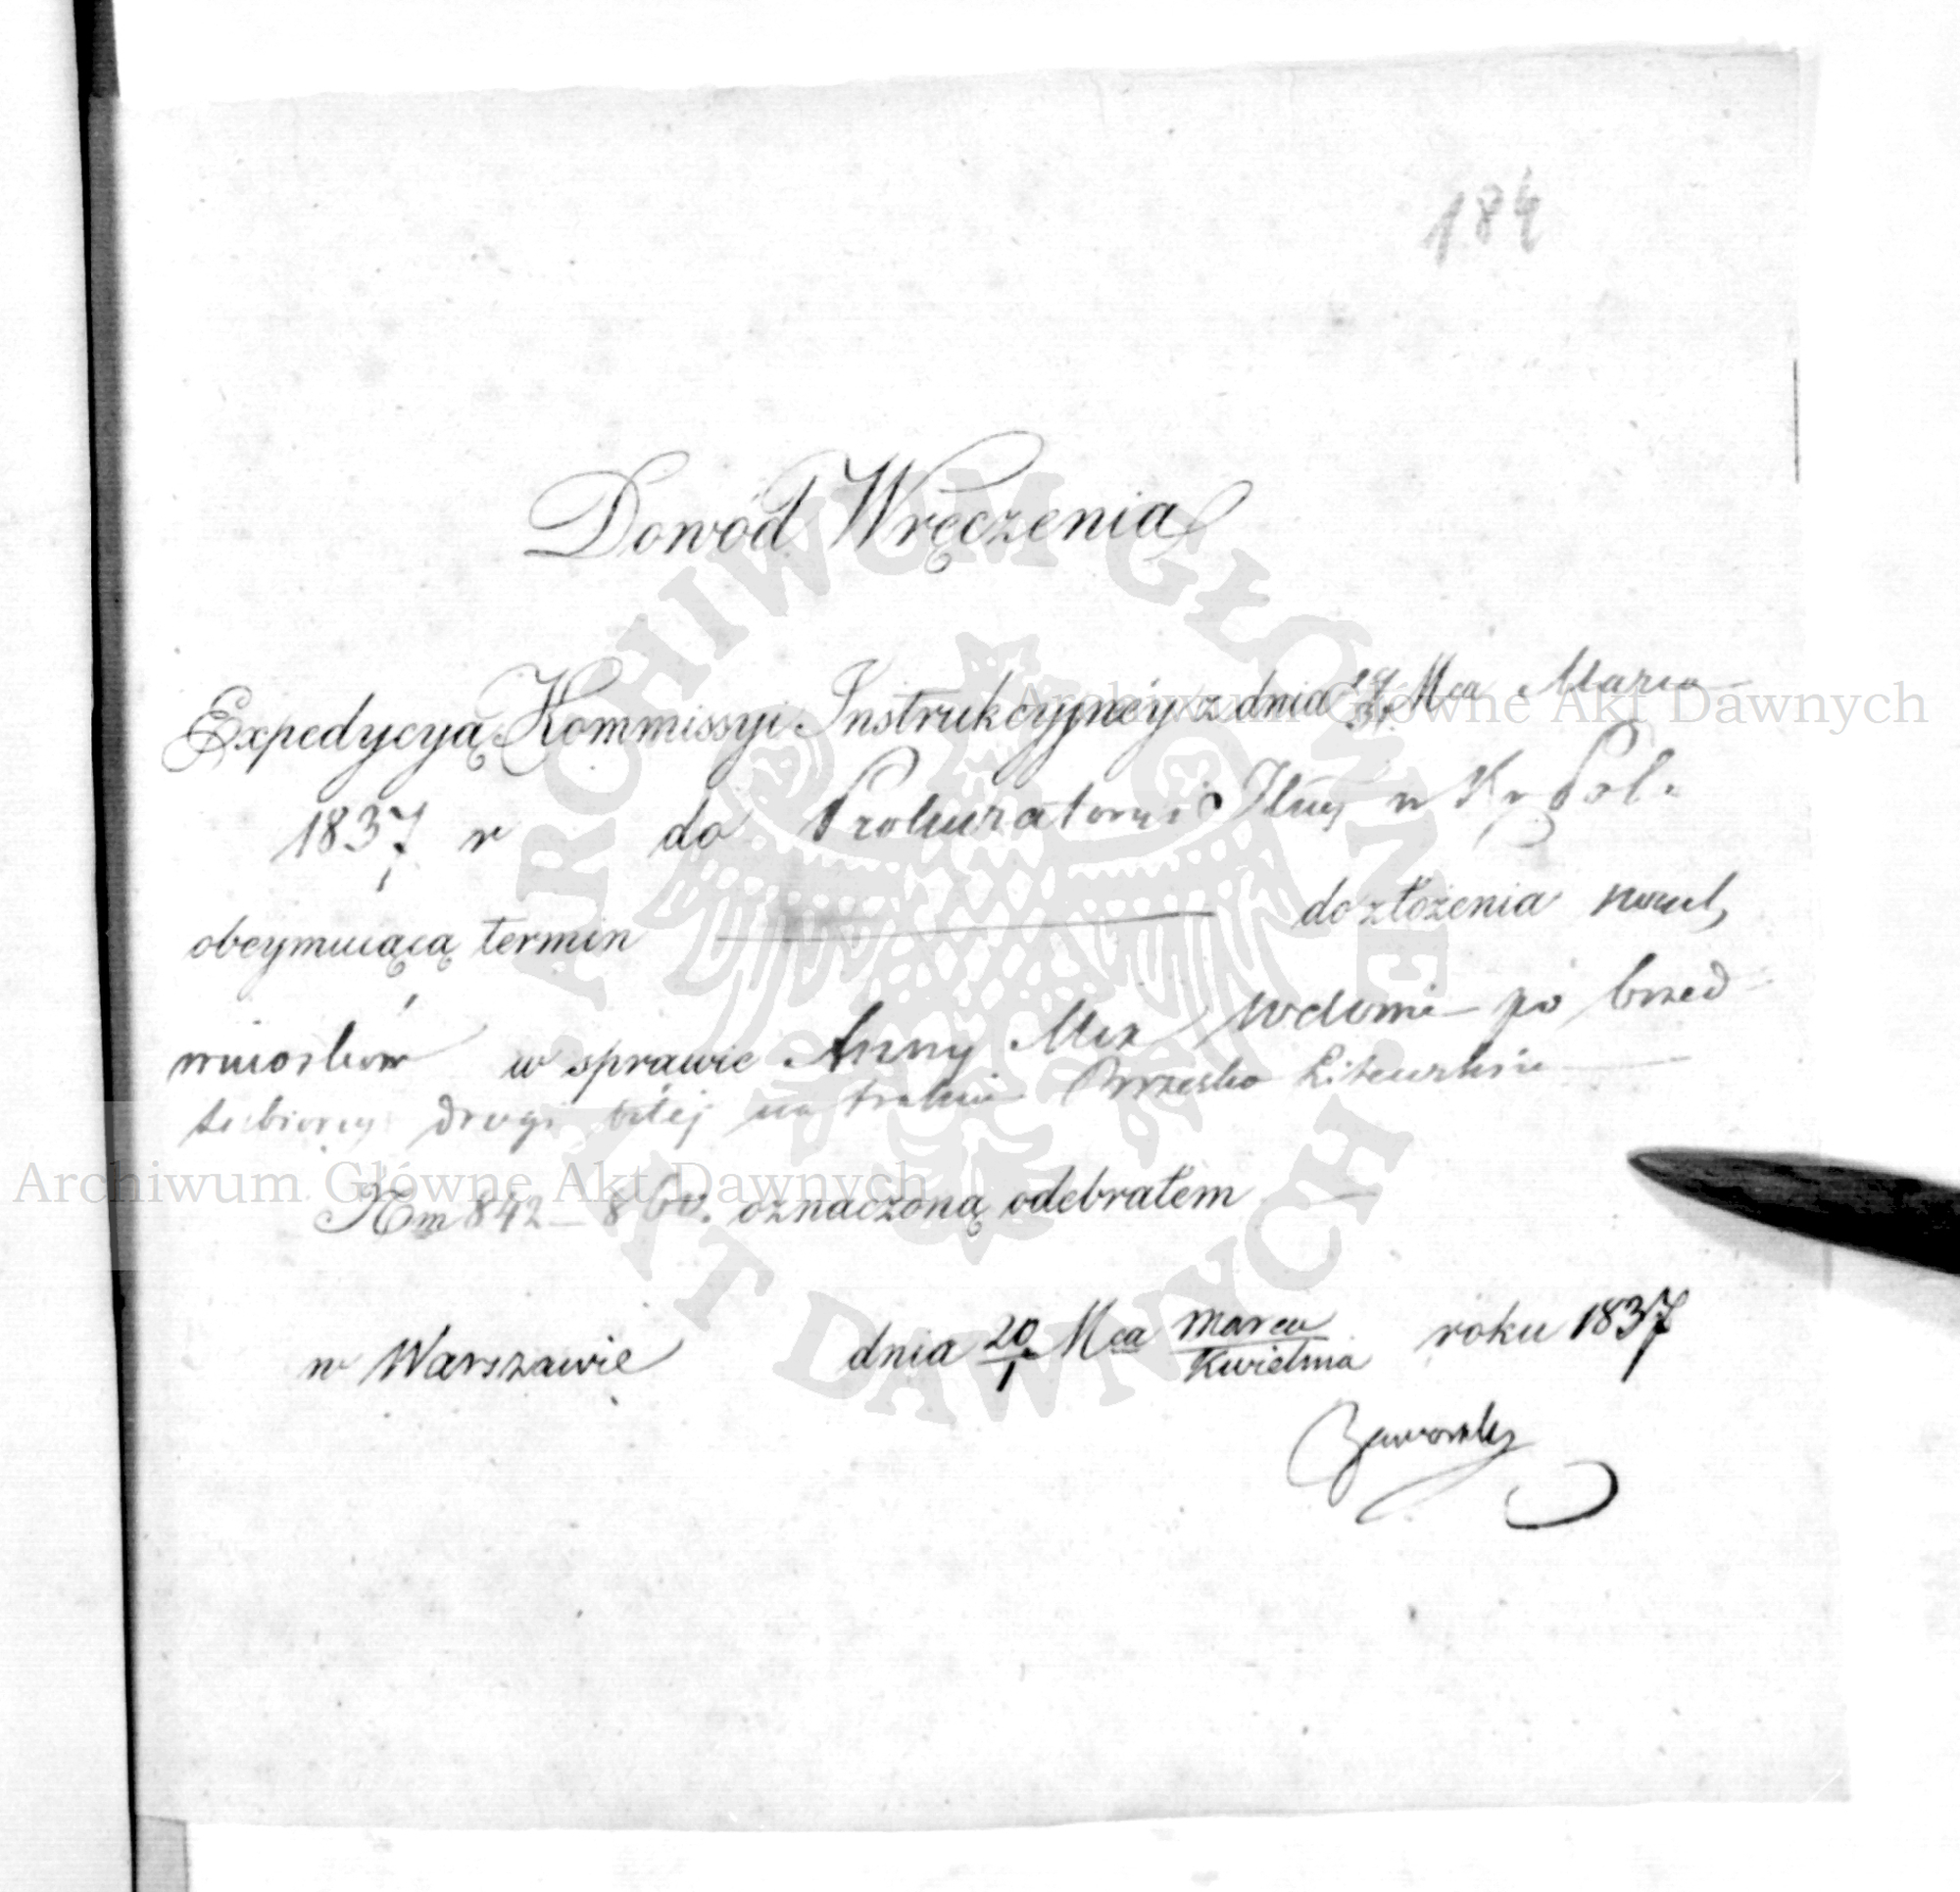 184
Dowód Wręczenia
Expedycyą Kommissyi Instrukcyjnéy z dnia Mca Marca
1837 r do Prokuratoryi w Kr Pol:
obeymuiącą termin do złożenia
wniosków w sprawie Anny Mex Wdowie po
drogi bitej na trakcie Brzesko Litewskim
Nrm 842 — 860. oznaczoną odebrałem
w Warszawie dnia 20/1 Mca Marca/Kwietnia roku 1837
ARCHIWUM GŁÓWNE AKT DAWNYCH
Archiwum Główne Akt Dawnych
Archiwum Główne Akt Dawnych